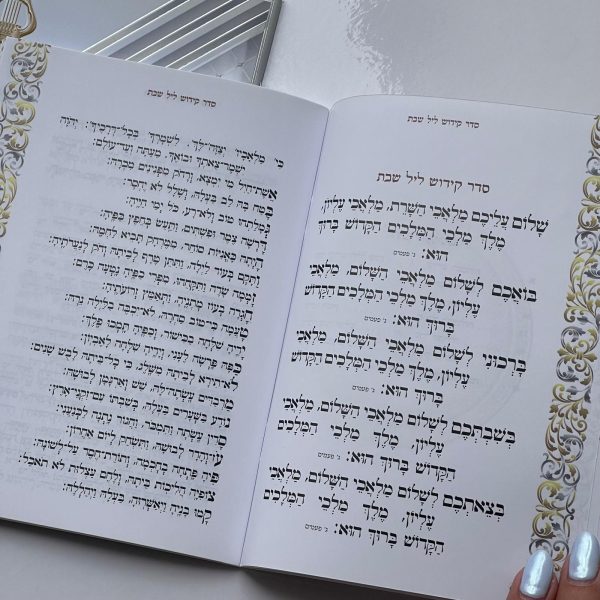 סדר קידוש ליל שבת
סדר קידוש ליל שבת
שָׁלוֹם עֲלֵיכֶם מַלְאֲכֵי הַשָּׁרֵת, מַלְאֲכֵי עֶלְיוֹן,
מֶלֶךְ מַלְכֵי הַמְּלָכִים הַקָּדוֹשׁ בָּרוּךְ
הוּא: ג׳ פעמים
בּוֹאֲכֶם לְשָׁלוֹם מַלְאֲכֵי הַשָּׁלוֹם, מַלְאֲכֵי
עֶלְיוֹן, מֶלֶךְ מַלְכֵי הַמְּלָכִים הַקָּדוֹשׁ
בָּרוּךְ הוּא: ג׳ פעמים
בָּרְכוּנִי לְשָׁלוֹם מַלְאֲכֵי הַשָּׁלוֹם, מַלְאֲכֵי
עֶלְיוֹן, מֶלֶךְ מַלְכֵי הַמְּלָכִים הַקָּדוֹשׁ
בָּרוּךְ הוּא: ג׳ פעמים
בְּשִׁבְתְּכֶם לְשָׁלוֹם מַלְאֲכֵי הַשָּׁלוֹם, מַלְאֲכֵי
עֶלְיוֹן, מֶלֶךְ מַלְכֵי הַמְּלָכִים
הַקָּדוֹשׁ בָּרוּךְ הוּא: ג׳ פעמים
בְּצֵאתְכֶם לְשָׁלוֹם מַלְאֲכֵי הַשָּׁלוֹם, מַלְאֲכֵי
עֶלְיוֹן, מֶלֶךְ מַלְכֵי הַמְּלָכִים
הַקָּדוֹשׁ בָּרוּךְ הוּא: ג׳ פעמים
סדר קידוש ליל שבת
כִּי מַלְאָכָיו יְצַוֶּה־לָּךְ. לִשְׁמָרְךָ בְּכָל־דְּרָכֶיךָ: יְהֹוָה
יִשְׁמָר־צֵאתְךָ וּבוֹאֶךָ, מֵעַתָּה וְעַד־עוֹלָם:
אֵשֶׁת־חַיִל מִי יִמְצָא, וְרָחֹק מִפְּנִינִים מִכְרָהּ:
בָּטַח בָּהּ לֵב בַּעְלָהּ, וְשָׁלָל לֹא יֶחְסָר:
גְּמָלַתְהוּ טוֹב וְלֹא־רָע, כֹּל יְמֵי חַיֶּיהָ:
דָּרְשָׁה צֶמֶר וּפִשְׁתִּים, וַתַּעַשׂ בְּחֵפֶץ כַּפֶּיהָ:
הָיְתָה כָּאֳנִיּוֹת סוֹחֵר, מִמֶּרְחָק תָּבִיא לַחְמָהּ:
וַתָּקָם בְּעוֹד לַיְלָה, וַתִּתֵּן טֶרֶף לְבֵיתָהּ וְחֹק לְנַעֲרֹתֶיהָ:
זָמְמָה שָׂדֶה וַתִּקָּחֵהוּ, מִפְּרִי כַפֶּיהָ נָטְעָה כָּרֶם:
חָגְרָה בְעוֹז מָתְנֶיהָ, וַתְּאַמֵּץ זְרוֹעֹתֶיהָ:
טָעֲמָה כִּי־טוֹב סַחְרָהּ, לֹא־יִכְבֶּה בַלַּיְלָה נֵרָהּ:
יָדֶיהָ שִׁלְּחָה בַכִּישׁוֹר, וְכַפֶּיהָ תָּמְכוּ פָלֶךְ:
כַּפָּהּ פָּרְשָׂה לֶעָנִי, וְיָדֶיהָ שִׁלְּחָה לָאֶבְיוֹן:
לֹא־תִירָא לְבֵיתָהּ מִשָּׁלֶג, כִּי כָל־בֵּיתָהּ לָבֻשׁ שָׁנִים:
מַרְבַדִּים עָשְׂתָה־לָּהּ, שֵׁשׁ וְאַרְגָּמָן לְבוּשָׁהּ:
נוֹדָע בַּשְּׁעָרִים בַּעְלָהּ, בְּשִׁבְתּוֹ עִם־זִקְנֵי־אָרֶץ:
סָדִין עָשְׂתָה וַתִּמְכֹּר, וַחֲגוֹר נָתְנָה לַכְּנַעֲנִי:
עֹז־וְהָדָר לְבוּשָׁהּ, וַתִּשְׂחַק לְיוֹם אַחֲרוֹן:
פִּיהָ פָּתְחָה בְחָכְמָה, וְתוֹרַת־חֶסֶד עַל־לְשׁוֹנָהּ:
צוֹפִיָּה הֲלִיכוֹת בֵּיתָהּ, וְלֶחֶם עַצְלוּת לֹא תֹאכֵל:
קָמוּ בָנֶיהָ וַיְאַשְּׁרוּהָ, בַּעְלָהּ וַיְהַלְלָהּ: